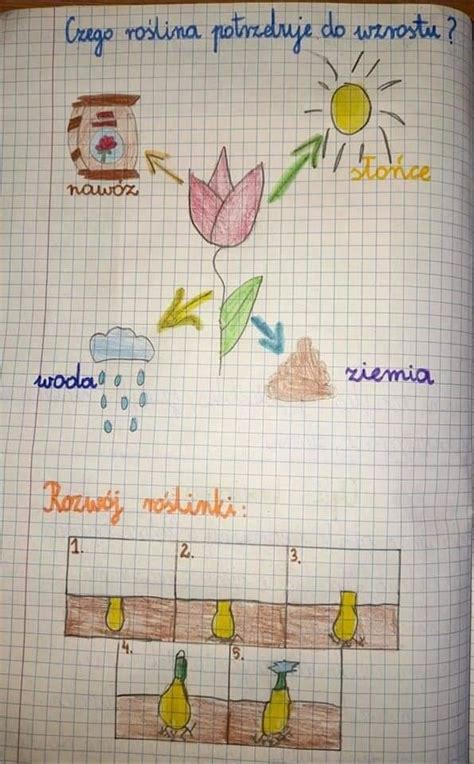 Czego roślina potrzebuje do wzrostu?
nawóz
słońce
woda
ziemia
Rozwój roślinki:
1. 2. 3.
4. 5.